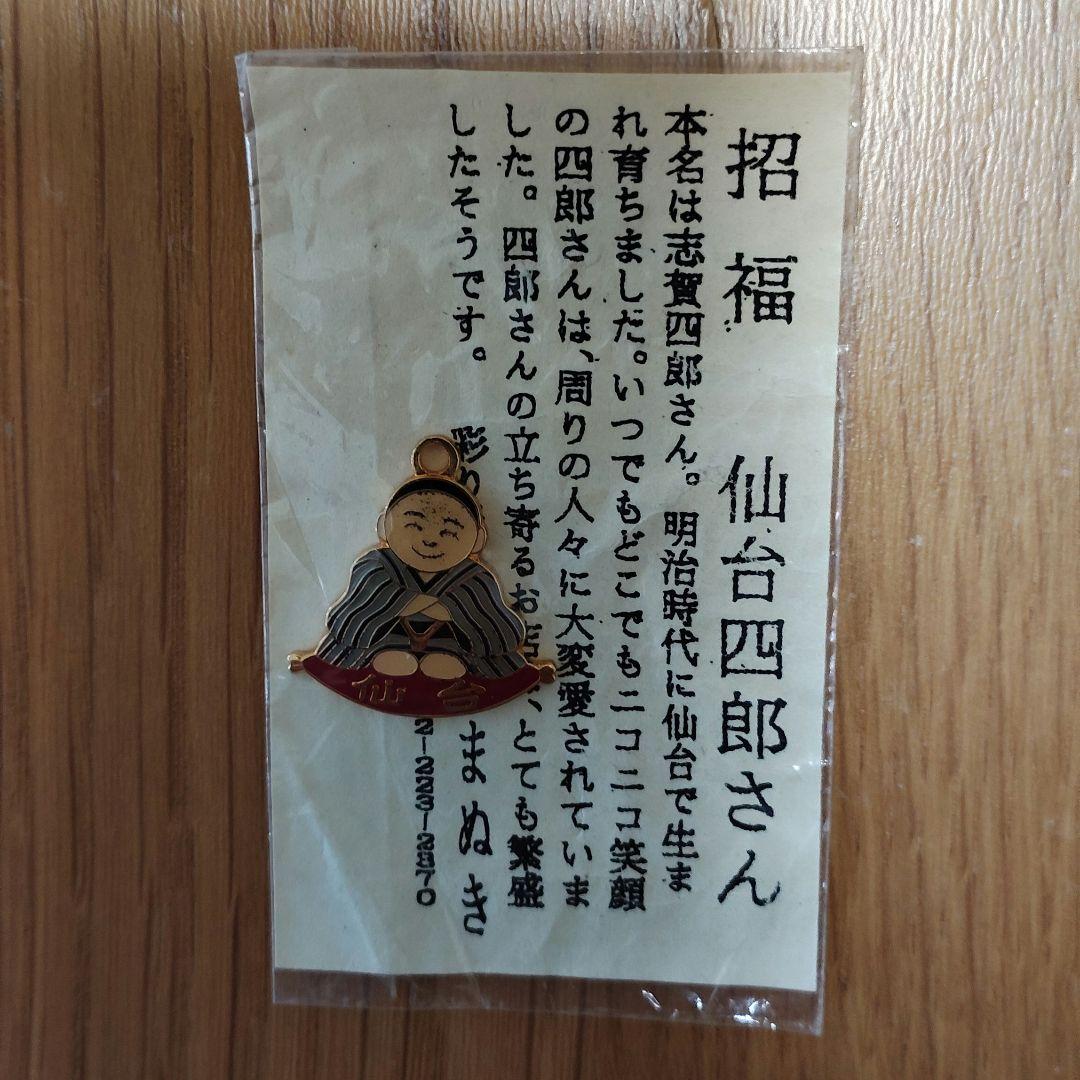 招福 仙台四郎さん
本名は志賀四郎さん。明治時代に仙台で生ま
れ育ちました。いつでもどこでもニコニコ笑顔
の四郎さんは、周りの人々に大変愛されていま
した。四郎さんの立ち寄るお店は、とても繁盛
したそうです。
彩り
まぬき
2-223-2370
仙台